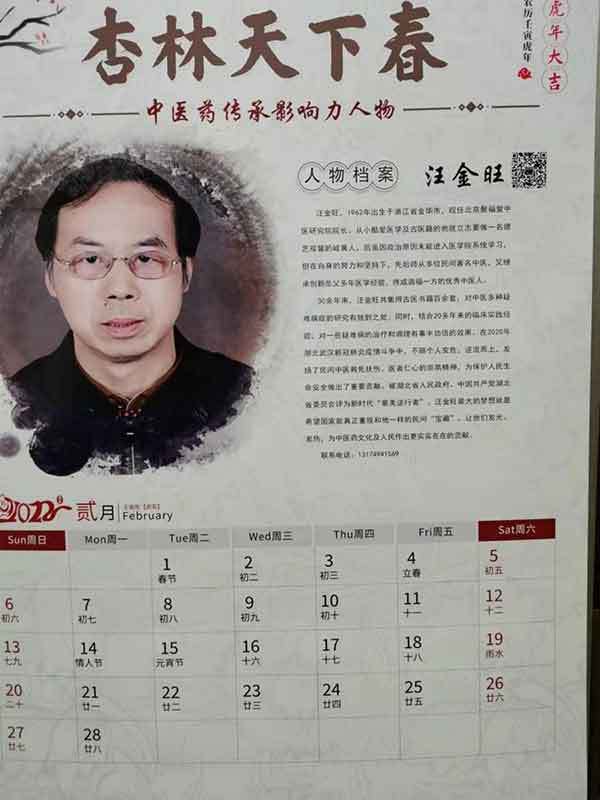 杏林天下春
农历壬寅虎年
虎年大吉
中医药传承影响力人物
人物档案 汪金旺
汪金旺，1962年出生于浙江省金华市，现任北京聚福堂中
医研究院院长。从小酷爱医学及古医籍的他就立志要做一名德
艺双馨的岐黄人，后虽因政治原因未能进入医学院系统学习，
但在自身的努力和坚持下，先后师从多位民间著名中医，又继
承创新岳父多年医学经验，终成造福一方的优秀中医人。
30余年来，汪金旺共集得古医书籍百余套，对中医多种疑
难病症的研究有独到之处；同时，结合20多年来的临床实践经
验，对一些疑难病的治疗和调理有事半功倍的效果。在2020年
湖北武汉新冠肺炎疫情斗争中，不顾个人安危，逆流而上，发
扬了民间中医救死扶伤、医者仁心的崇高精神，为保护人民生
命安全做出了重要贡献，被湖北省人民政府、中国共产党湖北
省委员会评为新时代“最美逆行者”。汪金旺最大的梦想就是
希望国家能真正重视和他一样的民间“宝藏”，让他们发光、
发热，为中医药文化及人民作出更实实在在的贡献。
联系电话：13174941569
2022 贰月 February
Sun周日 Mon周一 Tue周二 Wed周三 Thu周四 Fri周五 Sat周六
1 2 3 4 5
春节 初二 初三 立春 初五
6 7 8 9 10 11 12
初六 初七 初八 初九 初十 十一 十二
13 14 15 16 17 18 19
七九 情人节 元宵节 十六 十七 十八 雨水
20 21 22 23 24 25 26
二十 廿一 廿二 廿三 廿四 廿五 廿六
27 28
廿七 廿八